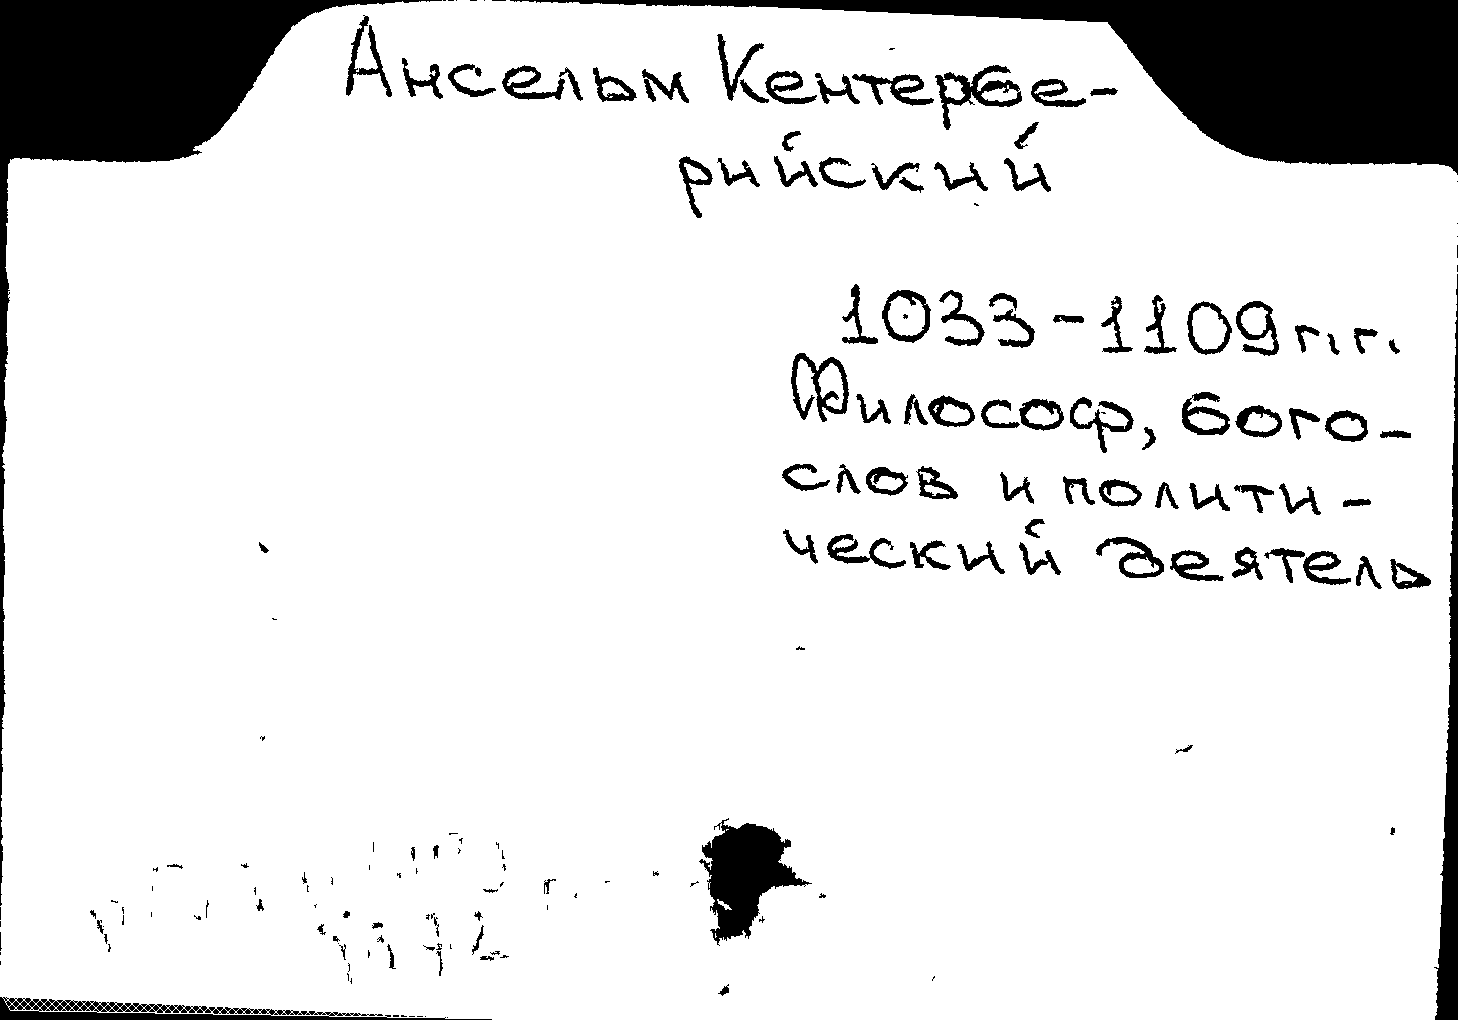 Ансельм Кентербе-
рийский
1033-1109г.г.
Философ, бого-
слов и полити-
ческий деятель